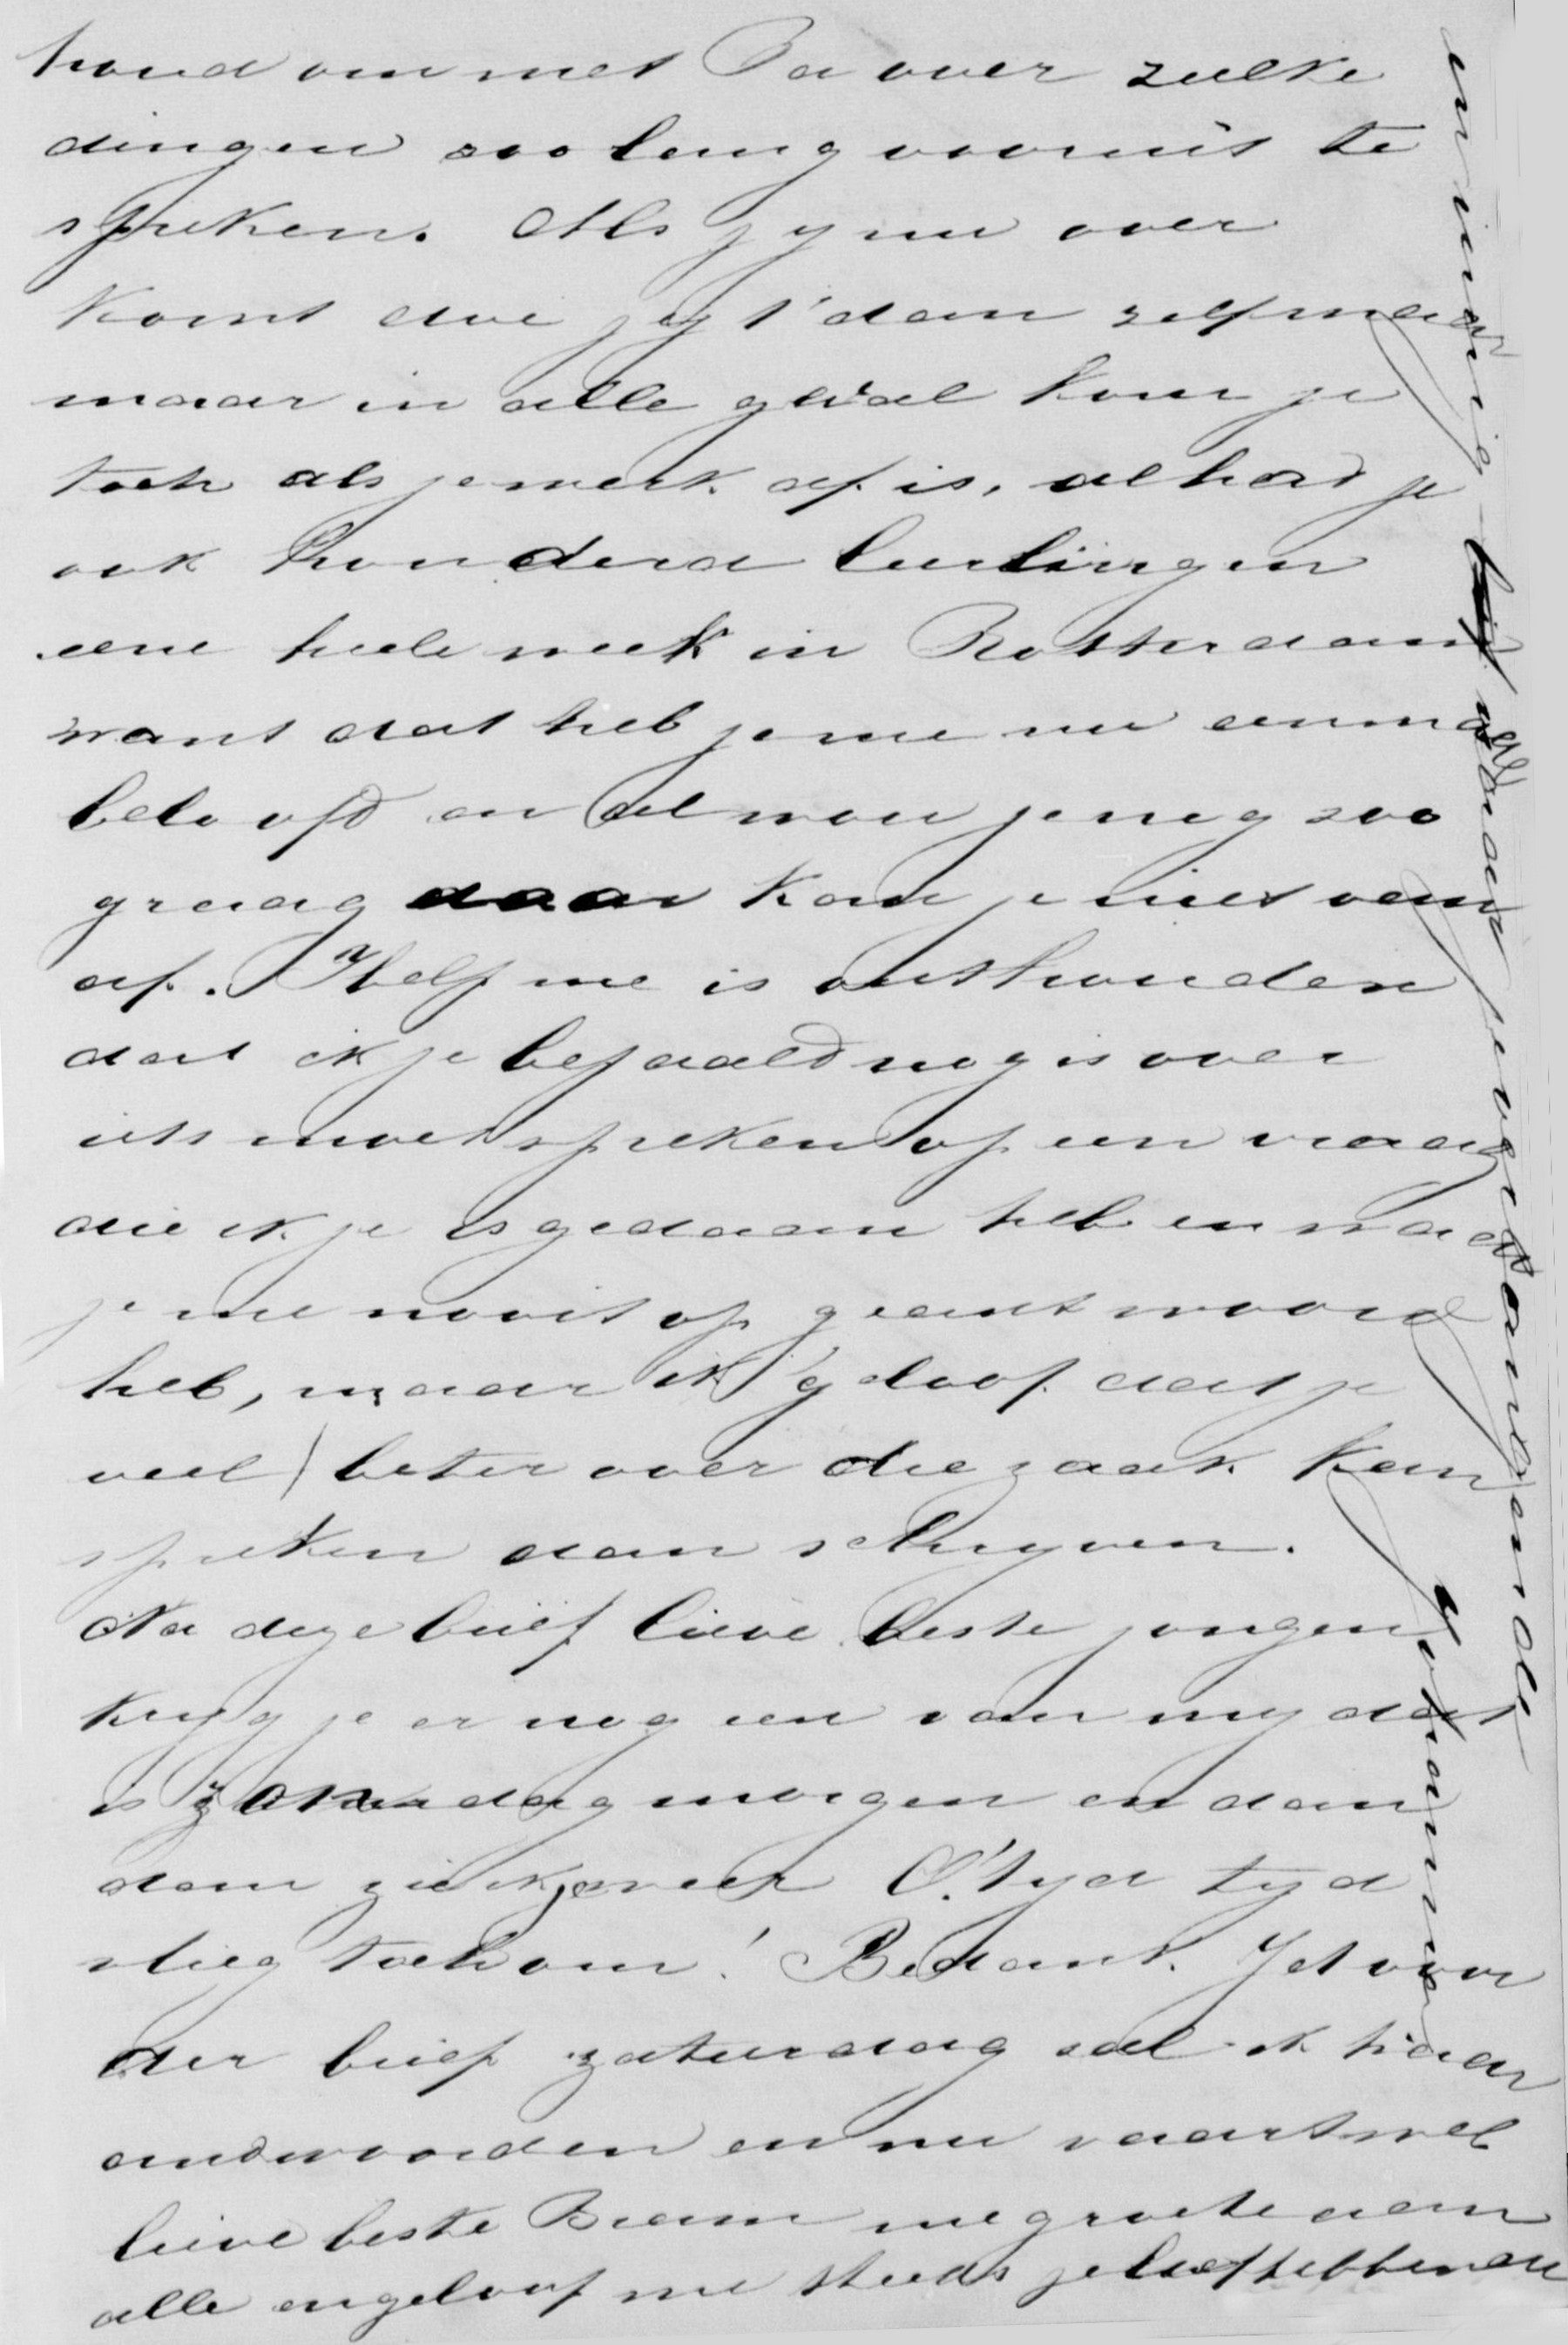 houd om met Pa over zulke
dingen zoo lang vooruit te
spreken. Als jy nu over
komt doe jy t' dan zelf maar
maar in alle geval kom je
toch als je werk af is, al had je
ook honderd leerlingen
eene heele week in Rotterdam
want dat heb je me nu eenmaal
beloofd en al wou je nog zoo
graag daar kom je niet van
af. Help me is onthouden
dat ik je bepaald nog is over
iets moet spreken op een vraag
die ik je is gedaan heb en waar
je me nooit op geantwoord
heb, maar ik geloof dat je
veel beter over die zaak kan
spreken dan schryven.
Na deze brief lieve beste jongen
kryg je er nog een van my dat
is zondag morgen en dan
dan zie ik je weer O! tyd tyd
vlieg toch om! Bedank Jet voor
der brief zaturdag zal ik haar
andwoorden en nu vaartwel
lieve beste Bram me groete aan
alle en geloof me steeds je liefhebbende
en innig naar je verlangende
Johanna